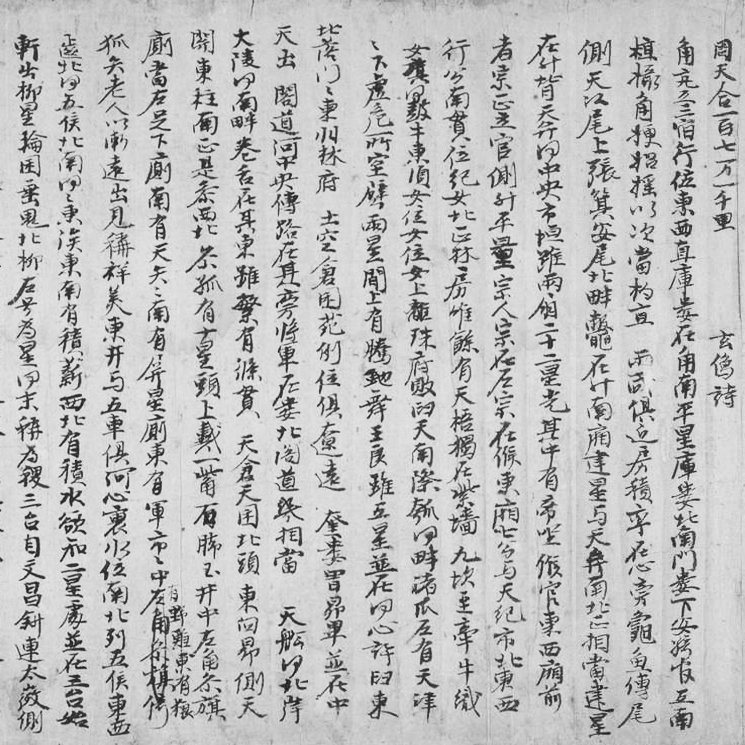 周天合一百七万一千里　玄像詩
角亢氐三宿行位東西直庫婁在角南平星庫婁北南門婁下安騎官氐南
植攝角梗招搖以次當杓直　兩咸俱近房積卒在心旁龜魚傅尾
側天江尾上張箕安尾北畔鼈在斗南廂建星与天弁南北正相當建星
在斗背天弁河中央市垣雖兩扇二十二星光其中有帝坐候官東西廂前
者宗正立官側斗平量宗人宗在左宗在候東廂七公与天紀市北東西
行公南貫位紀女北正牀〻房唯餘有天棓獨在紫墻　九坎至牽牛織
女旗河鼓牛東須女位女位女上離珠府敗臼天南際瓠河畔諸瓜左有天津
〻下虛危所室壁兩星間上有騰虵舞王良雖五星並在河心許臼東
北落門〻東林府　土空倉囷苑例位俱遼遠　奎婁胃昴畢並在中
天出　閣道河中央傅路在其旁將軍在婁北閣道相當　天舩河北岸
大陵河南畔卷舌在其東雖繁有條貫　天倉天囷北頭東向昴側天
關東柱南正是參西北參狐有十星頭上戴一觜有肺玉井中左角參旗
廁當右足下廁南有天矢〻南有屏星廁東有軍市〻中左角參旗傍
有野雞東有狼
狐矢老人以漸遠出見稱祥美東井与五車俱河心裏水位南北列五侯東西
遠北河五侯北南河〻東涘東南有積薪西北有積水欲知二星處並在三台始
軒出柳星輪囷垂鬼北柳左号為星河末稱為稷三台自文昌斜連太微側